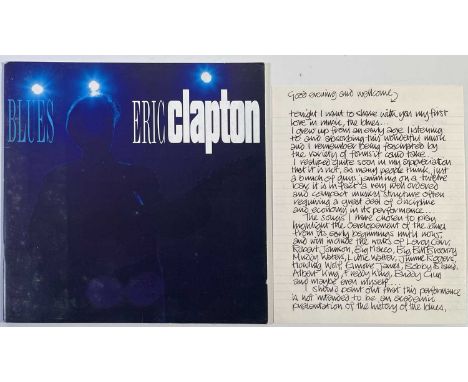 BLUES
ERIC clapton
Good evening and welcome,
tonight I want to share with you my first
love in music, the blues..
I grew up from an early age listening
to and absorbing this wonderful music
and I remember being fascinated by
the variety of forms it could take..
I realised quite soon in my appreciation
that it is not, as many people think, just
a bunch of guys jamming on a twelve
bar, it is in fact a very well ordered
and compact musical structure often
requiring a great deal of discipline
and economy in its performance..
The songs I have chosen to play
highlight the development of the blues
from its early beginnings until now,
and will include the works of Leroy Carr,
Robert Johnson, Big Maceo, Big Bill Broonzy
Muddy Waters, Little Walter, Jimmie Rogers,
Howling Wolf, Elmore James, Bobby Bland,
Albert King, Freddy King, Buddy Guy
and maybe even myself...
I should point out that this performance
is not intended to be an academic
presentation of the history of the blues,